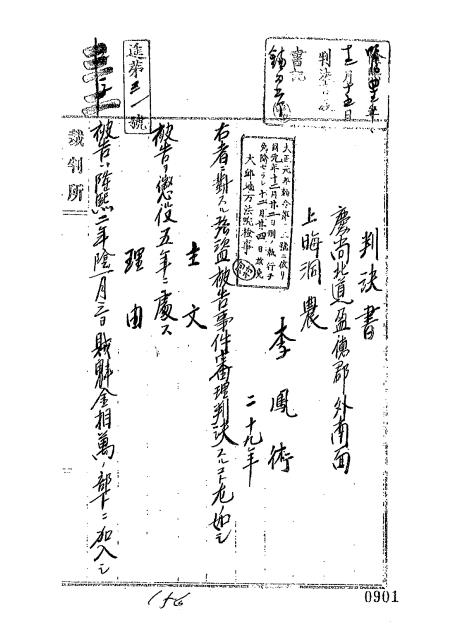 隆熙四年
十二月十五日
判決言渡
書記
判決書
慶尚北道盈德郡外南面
上晦洞 農
李鳳術
二十九年
大正元年勅令第二號ニ依リ
同元年十二月廿二日刑ノ執行ヲ
免除セラレ十二月廿四日放免
大邱地方法院檢事
右者ニ對スル强盜被告事件審理判決スルコト左ノ如シ
主文
被告ヲ懲役五年ニ處ス
理由
被告ハ隆熙二年陰一月三日賊魁金相萬ノ部下ニ加入シ
進第三一號
裁判所
156
0901